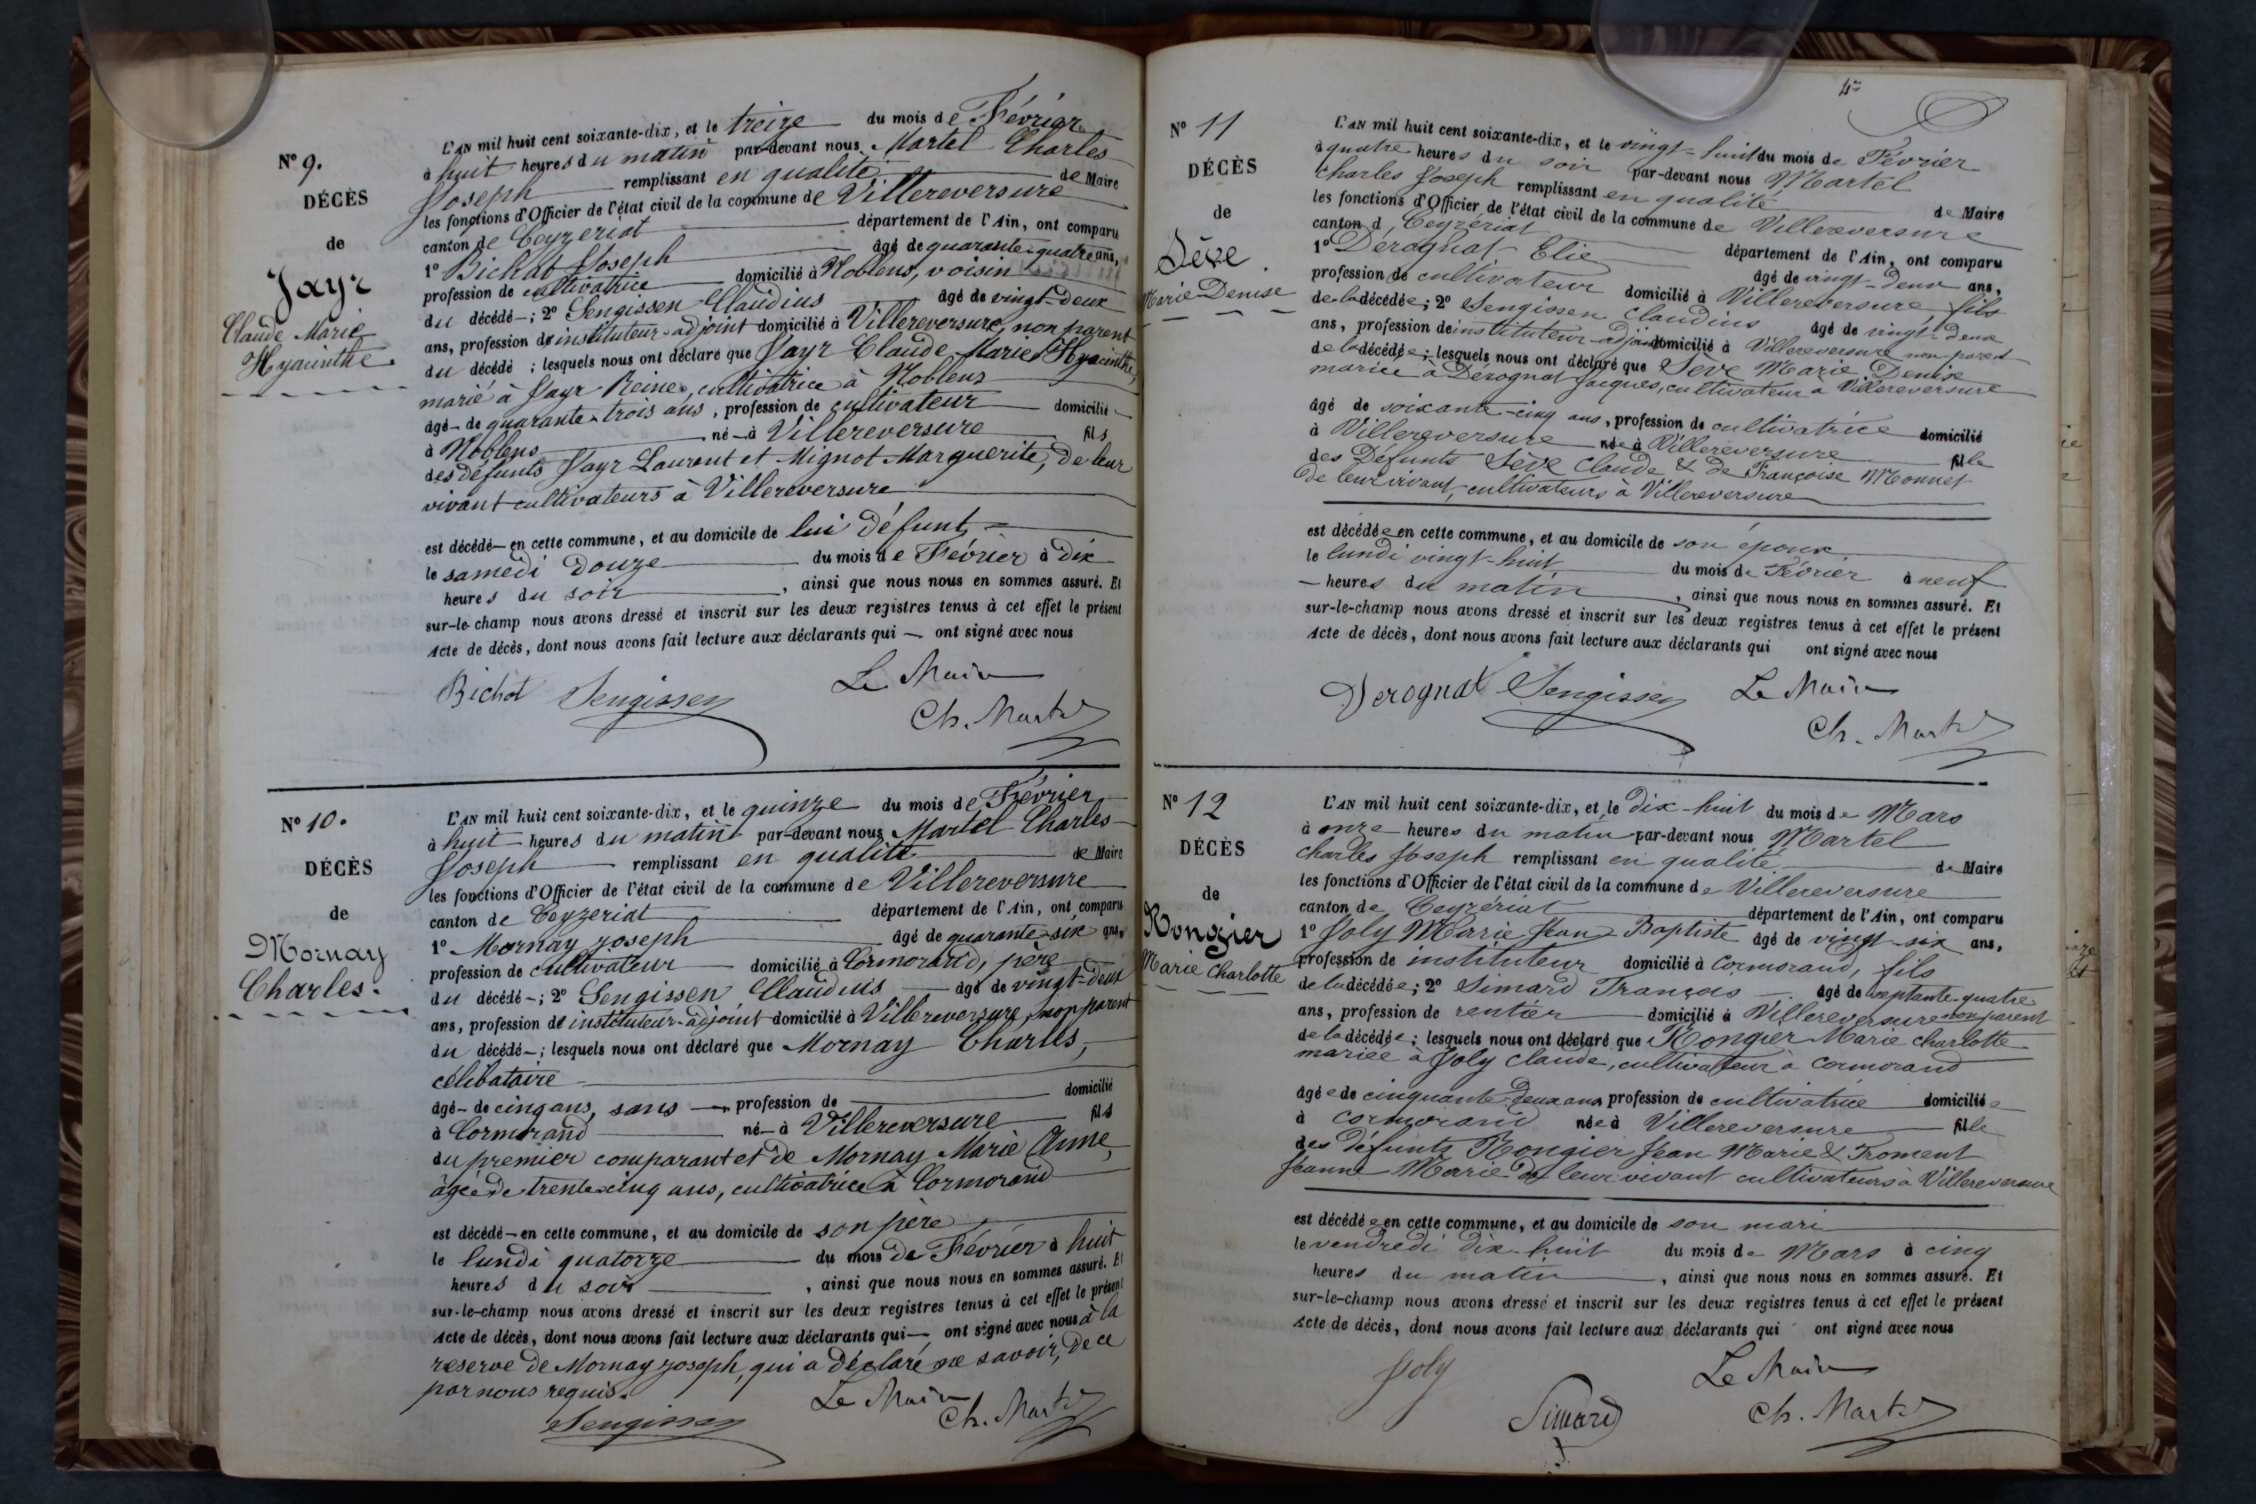 N° 9.
DÉCÈS
de
Jayr
Claude Marie
Hyacinthe
L'AN mil huit cent soixante-dix, et le treize du mois de Février
à huit heures du matin par-devant nous Martel Charles
Joseph remplissant en qualité de Maire
les fonctions d'Officier de l'état civil de la commune de Villereversure
canton de Ceyzeriat département de l'Ain, ont comparu
1° Bichat Joseph âgé de quarante-quatre ans,
profession de cultivatrice domicilié à Noblens, voisin
du décédé ; 2° Sengissen Claudius âgé de vingt-deux
ans, profession de instituteur-adjoint domicilié à Villereversure, non parent
du décédé ; lesquels nous ont déclaré que Jayr Claude Marie Hyacinthe,
marié à Jayr Reine, cultivatrice à Noblens
âgé de quarante-trois ans, profession de cultivateur domicilié
à Noblens né à Villereversure fils
des défunts Jayr Laurent et Mignot Marguerite, de leur
vivant cultivateurs à Villereversure
est décédé en cette commune, et au domicile de lui défunt
le samedi douze du mois de Février à dix
heures du soir, ainsi que nous nous en sommes assuré. Et
sur-le-champ nous avons dressé et inscrit sur les deux registres tenus à cet effet le présent
Acte de décès, dont nous avons fait lecture aux déclarants qui ont signé avec nous
Bichat Sengissen Le Maire
Ch. Martel
N° 10.
DÉCÈS
de
Mornay
Charles.
L'AN mil huit cent soixante-dix, et le quinze du mois de Février
à huit heures du matin par-devant nous Martel Charles
Joseph remplissant en qualité de Maire
les fonctions d'Officier de l'état civil de la commune de Villereversure
canton de Ceyzeriat département de l'Ain, ont comparu
1° Mornay Joseph âgé de quarante-six ans,
profession de cultivateur domicilié à Cormorand, père
du décédé ; 2° Sengissen Claudius âgé de vingt-deux
ans, profession de instituteur-adjoint domicilié à Villereversure, non parent
du décédé ; lesquels nous ont déclaré que Mornay Charles,
célibataire
âgé de cinq ans, sans profession de domicilié
à Cormorand né à Villereversure fils
du premier comparant et de Mornay Marie Anne,
âgée de trente-cinq ans, cultivatrice à Cormorand
est décédé en cette commune, et au domicile de son père
le lundi quatorze du mois de Février à huit
heures du soir, ainsi que nous nous en sommes assuré. Et
sur-le-champ nous avons dressé et inscrit sur les deux registres tenus à cet effet le présent
Acte de décès, dont nous avons fait lecture aux déclarants qui ont signé avec nous à la
reserve de Mornay Joseph, qui a déclaré ne savoir, de ce
par nous requis.
Le Maire
Sengissen Ch. Martel
N° 11
DÉCÈS
de
Sève
Marie Denise
L'AN mil huit cent soixante-dix, et le vingt-huit du mois de Février
à quatre heures du soir par-devant nous Martel
Charles Joseph remplissant en qualité de Maire
les fonctions d'Officier de l'état civil de la commune de Villereversure
canton d Ceyzériat département de l'Ain, ont comparu
1° Dérognat Elie âgé de vingt-deux ans,
profession de cultivateur domicilié à Villereversure, fils
de la décédée ; 2° Sengissen Claudius âgé de vingt-deux
ans, profession de instituteur-adjoint domicilié à Villereversure non parent
de la décédée ; lesquels nous ont déclaré que Sève Marie Denise
mariée à Dérognat Jacques, cultivateur à Villereversure
âgé de soixante-cinq ans, profession de cultivatrice domicilié
à Villereversure née à Villereversure fille
des Défunts Sève Claude & de Françoise Monnet
de leur vivant, cultivateurs à Villereversure
est décédée en cette commune, et au domicile de son époux
le lundi vingt-huit du mois de Février à neuf
heures du matin, ainsi que nous nous en sommes assuré. Et
sur-le-champ nous avons dressé et inscrit sur les deux registres tenus à cet effet le présent
Acte de décès, dont nous avons fait lecture aux déclarants qui ont signé avec nous
Derognat Sengissen Le Maire
Ch. Martel
N° 12
DÉCÈS
de
Rongier
Marie Charlotte
L'AN mil huit cent soixante-dix, et le dix-huit du mois de Mars
à onze heures du matin par-devant nous Martel
Charles Joseph remplissant en qualité de Maire
les fonctions d'Officier de l'état civil de la commune de Villereversure
canton de Ceyzériat département de l'Ain, ont comparu
1° Joly Marie Jean Baptiste âgé de vingt-six ans,
profession de instituteur domicilié à Cormorand, fils
de la décédée ; 2° Simard François âgé de septante-quatre
ans, profession de rentier domicilié à Villereversure non parent
de la décédée ; lesquels nous ont déclaré que Rongier Marie Charlotte
mariée à Joly Claude, cultivateur à Cormorand
âgée de cinquante-deux ans profession de cultivatrice domiciliée
à Cormorand née à Villereversure fille
des défunts Rongier Jean Marie & Froment
Jeanne Marie de leur vivant cultivateurs à Villereversure
est décédée en cette commune, et au domicile de son mari
le vendredi dix-huit du mois de Mars à cinq
heures du matin, ainsi que nous nous en sommes assuré. Et
sur-le-champ nous avons dressé et inscrit sur les deux registres tenus à cet effet le présent
Acte de décès, dont nous avons fait lecture aux déclarants qui ont signé avec nous
Joly Le Maire
Simard Ch. Martel